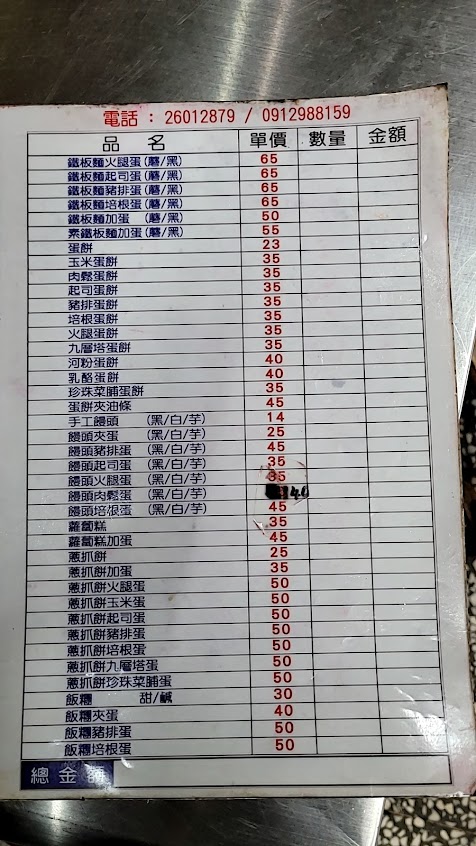 電話：26012879 / 0912988159
品 名 單價 數量 金額
鐵板麵火腿蛋(蘑/黑) 65
鐵板麵起司蛋(蘑/黑) 65
鐵板麵豬排蛋(蘑/黑) 65
鐵板麵培根蛋(蘑/黑) 65
鐵板麵加蛋 (蘑/黑) 50
素鐵板麵加蛋(蘑/黑) 55
蛋餅 23
玉米蛋餅 35
肉鬆蛋餅 35
起司蛋餅 35
豬排蛋餅 35
培根蛋餅 35
火腿蛋餅 35
九層塔蛋餅 35
河粉蛋餅 40
乳酪蛋餅 40
珍珠菜脯蛋餅 35
蛋餅夾油條 45
手工饅頭 (黑/白/芋) 14
饅頭夾蛋 (黑/白/芋) 25
饅頭豬排蛋 (黑/白/芋) 45
饅頭起司蛋 (黑/白/芋) 35
饅頭火腿蛋 (黑/白/芋) 35
饅頭肉鬆蛋 (黑/白/芋) 40
饅頭培根蛋 (黑/白/芋) 45
蘿蔔糕 35
蘿蔔糕加蛋 45
蔥抓餅 25
蔥抓餅加蛋 35
蔥抓餅火腿蛋 50
蔥抓餅玉米蛋 50
蔥抓餅起司蛋 50
蔥抓餅豬排蛋 50
蔥抓餅培根蛋 50
蔥抓餅九層塔蛋 50
蔥抓餅珍珠菜脯蛋 50
飯糰 甜/鹹 30
飯糰夾蛋 40
飯糰豬排蛋 50
飯糰培根蛋 50
總金額